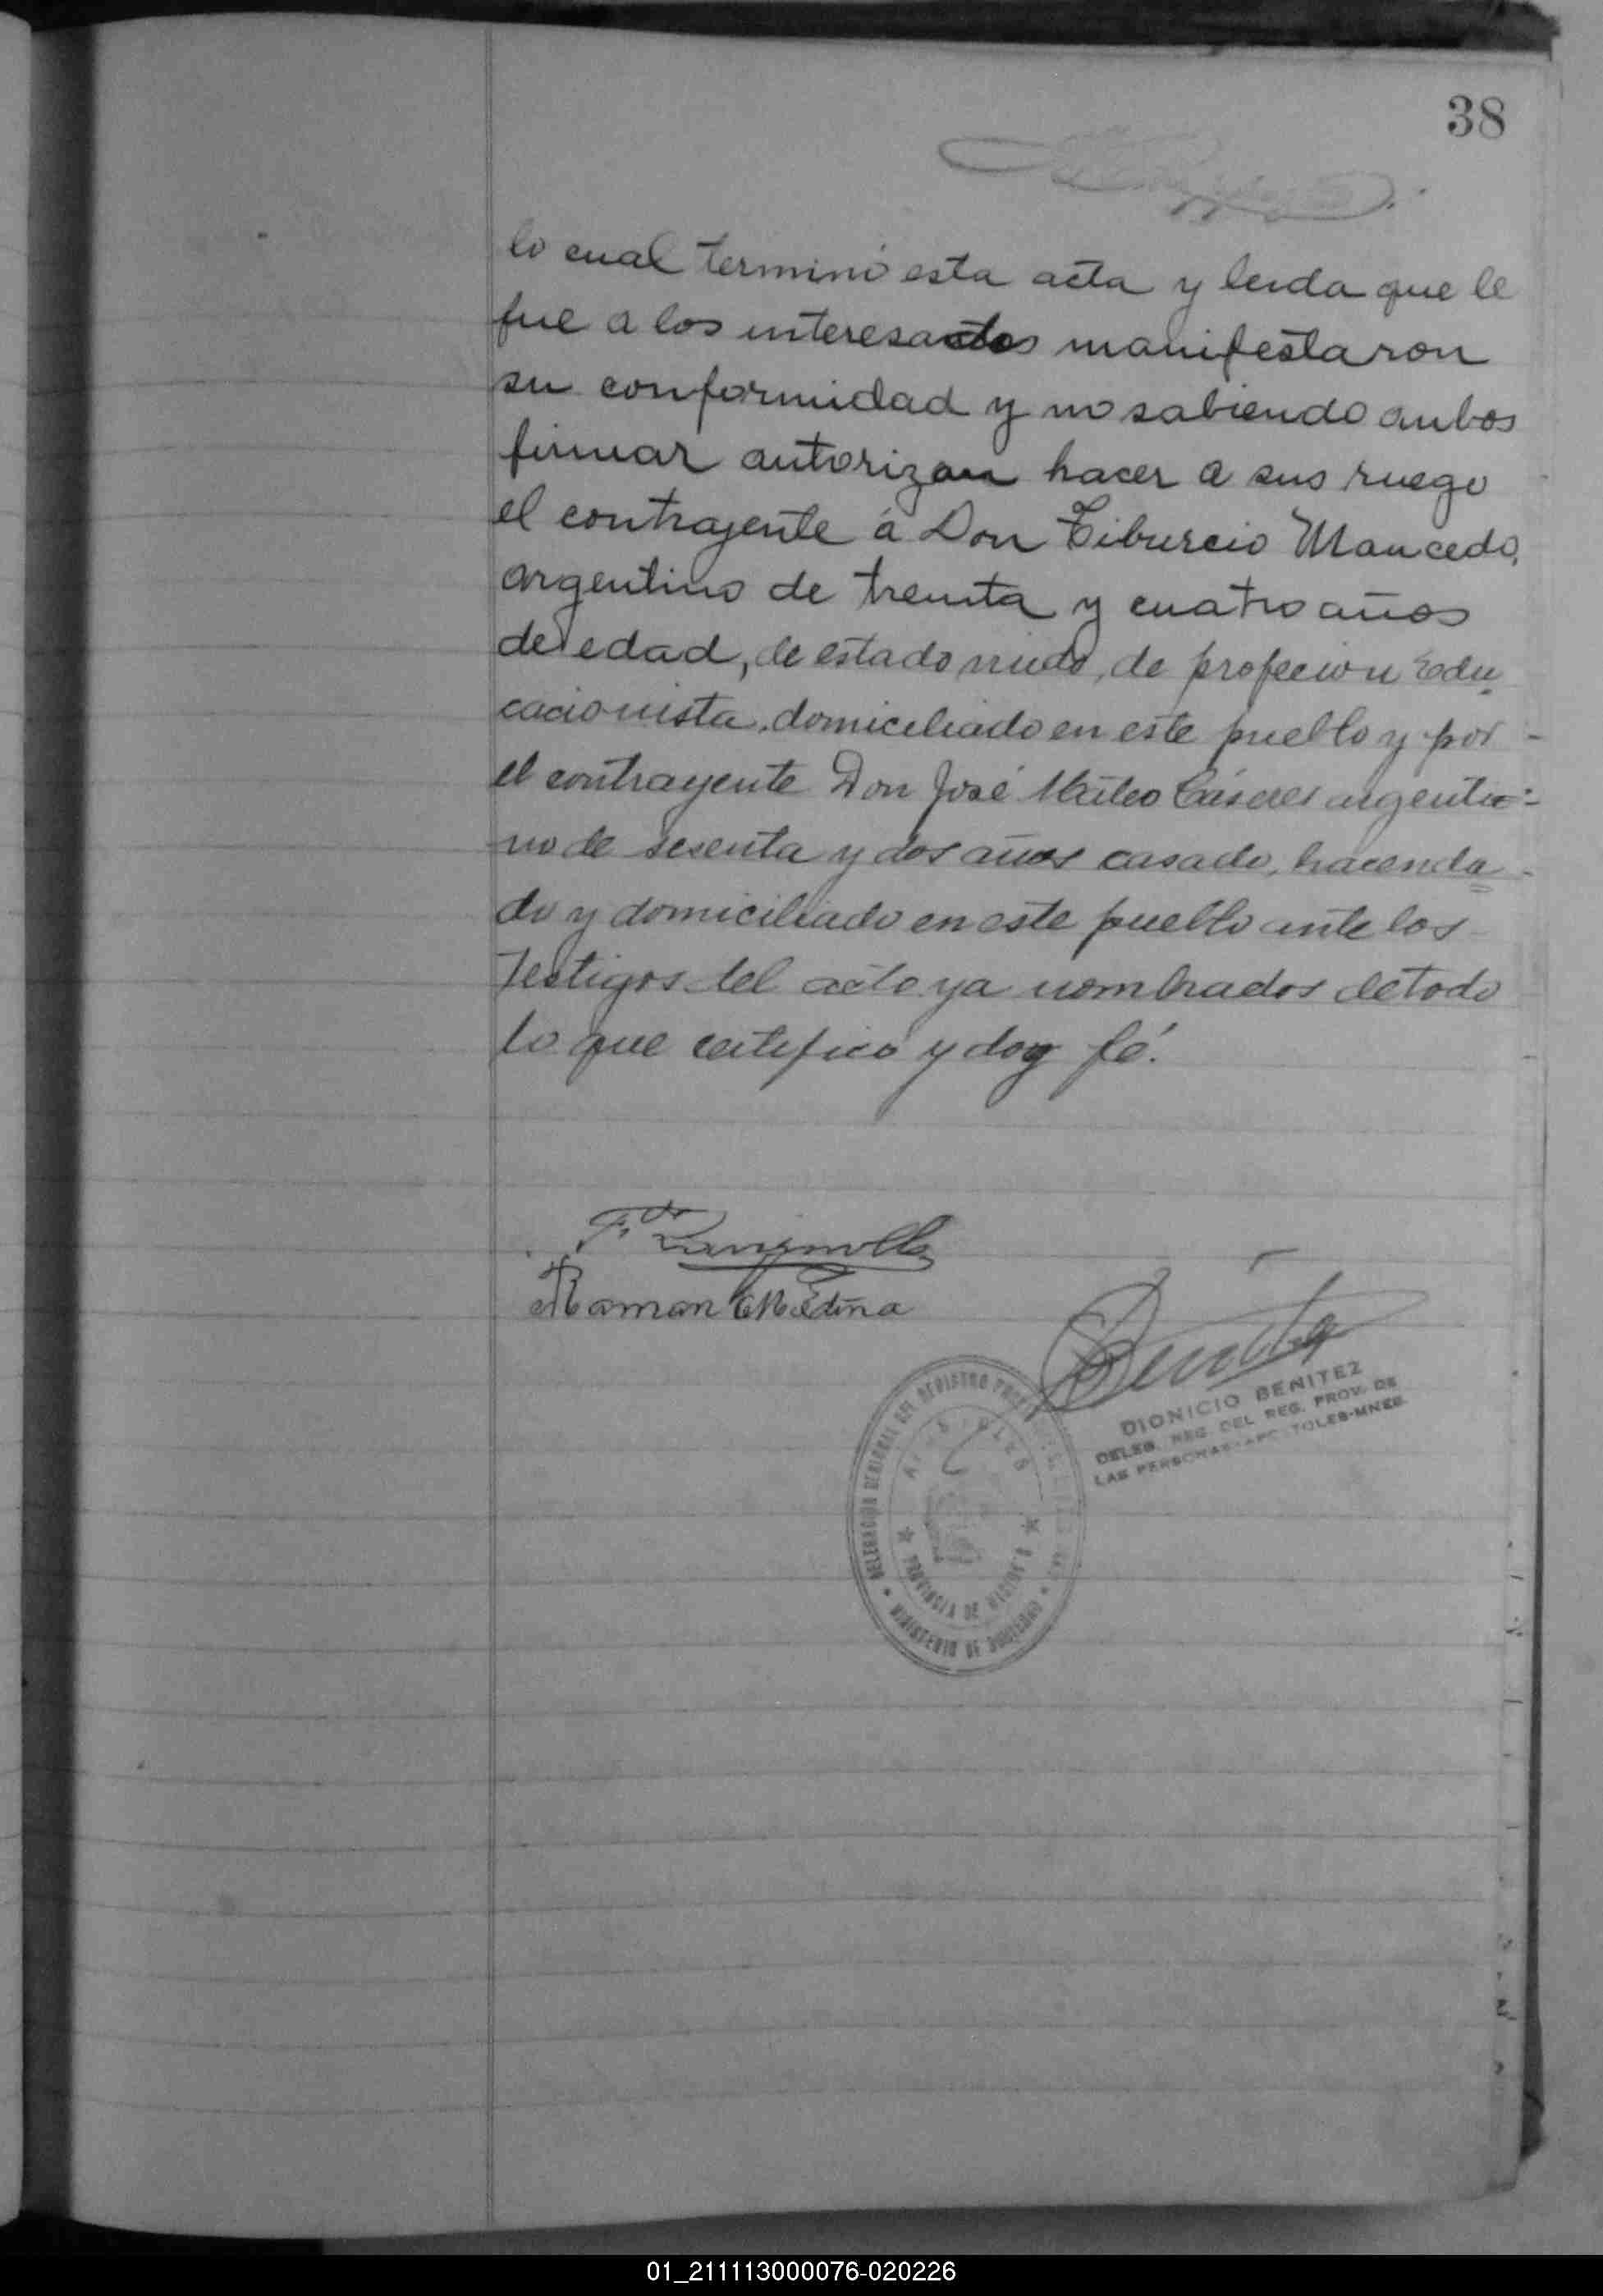 38
lo cual terminó esta acta y leida que le
fue a los interesados manifestaron
su conformidad y no sabiendo ambos
firmar autorizan hacer a sus ruego
el contrajente á Don Tiburcio Mancedo,
argentino de treinta y cuatro años
de edad, de estado viudo, de profecion Edu
cacionista, domiciliado en este pueblo y por
el contrayente Don José Mateo Cáseres argenti-
no de sesenta y dos años casado, hacenda
do y domiciliado en este pueblo ante los
Testigos del acto ya nombrados de todo
lo que certifico y doy fé.
Ramon Medina
DIONICIO BENITEZ
DELEG. REG. DEL REG. PROV. DE
LAS PERSONAS-APOSTOLES-MNES.
DELEGACION REGIONAL DEL REGISTRO
PROVINCIA DE MISIONES
MINISTERIO DE GOBIERNO
01_211113000076-020226